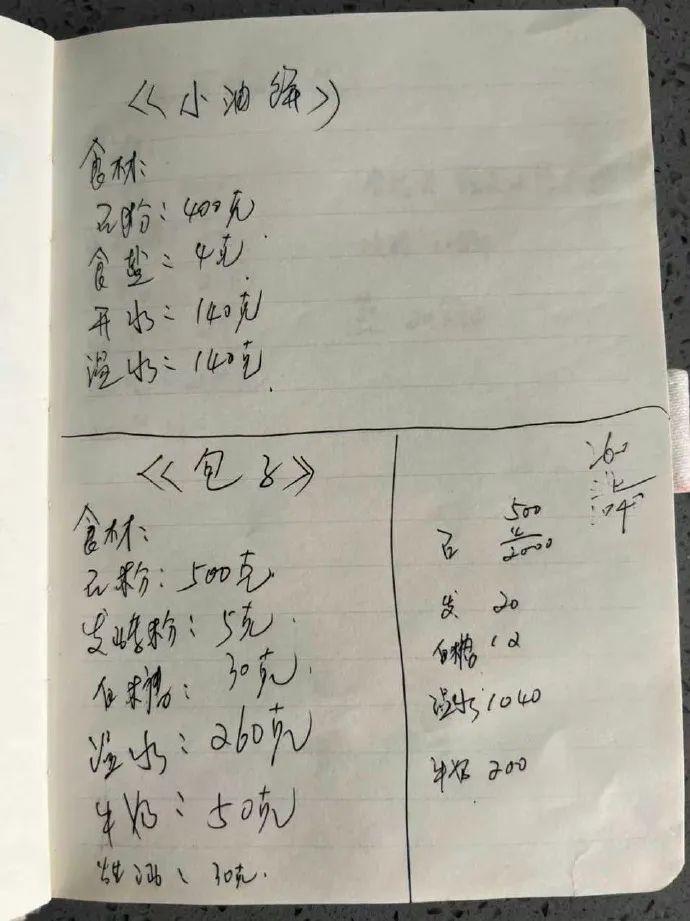 《小油饼》
食材:
面粉:400克
食盐:4克
开水:140克
温水:140克
《包子》
食材:
面粉:500克
发酵粉:5克
白糖:30克
温水:260克
牛奶:50克
油、30克
260
4
500
4
面 2000
发 20
白糖 12
温水 1040
牛奶 200